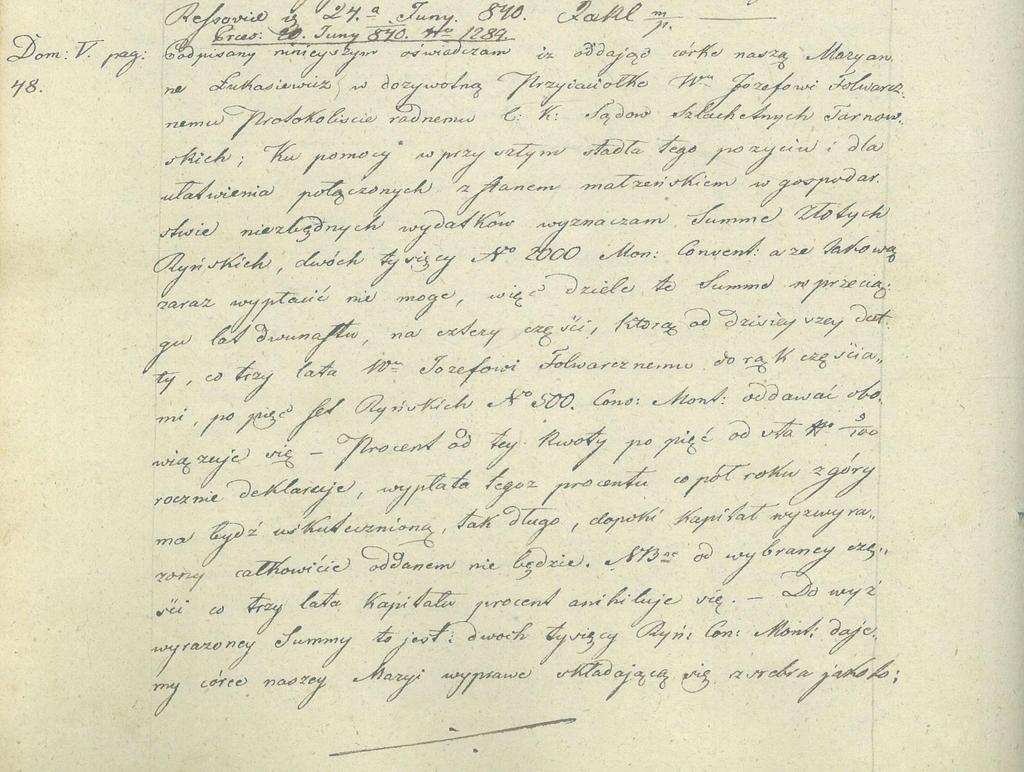 Ressoviae 24.a Juny. 840. Zakl m/p.
Praes: 20. Juny 840. No 1289.
Dom: V. pag: 48.
Podpisany ninieyszym oświadczam iz oddając córke naszą Maryan„
ne Łukasiewicz w dozywotną Przyiaciołke Wmu Jozefowi Folwarcz„
nemu Protokoliście radnemu C: K: Sądow Szlachetnych Tarnow„
skich; Ku pomocy w przysztym stadła tego pozyciu i dla
ułatwienia połączonych z stanem małzeńskiem w gospodar„
stwie niezbędnych wydatków wyznaczam Summe Złotych
Ryńskich, dwóch tysięcy No 2000 Mon: Convent: a ze takową
zaraz wypłacić nie moge, więc dziele te Summe w przecią„
gu lat dwunastu, na cztery części, ktorą od dzisieyszey dat„
ty, co trzy lata Wmu Jozefowi Folwarcznemu do rąk częścia„
mi, po pięć set Ryńskich No 500. Conv: Mont: oddawać obo„
wiązuje się – Procent od tey kwoty po pięć od sta No 5/100
rocznie deklaruje, wypłata tegoz procentu co pół roku z góry
ma bydź uskutecznioną, tak długo, dopoki Kapitał wyzwyra„
zony całkowicie oddanem nie będzie. NBne od wybraney czę„
ści co trzy lata Kapitału procent anihiluje się. – Do wyż
wyrazoney Summy to jest: dwoch tysięcy Ryń: Con: Mont: daje„
my córce naszey Maryi wyprawe składającą się z srebra jako to: